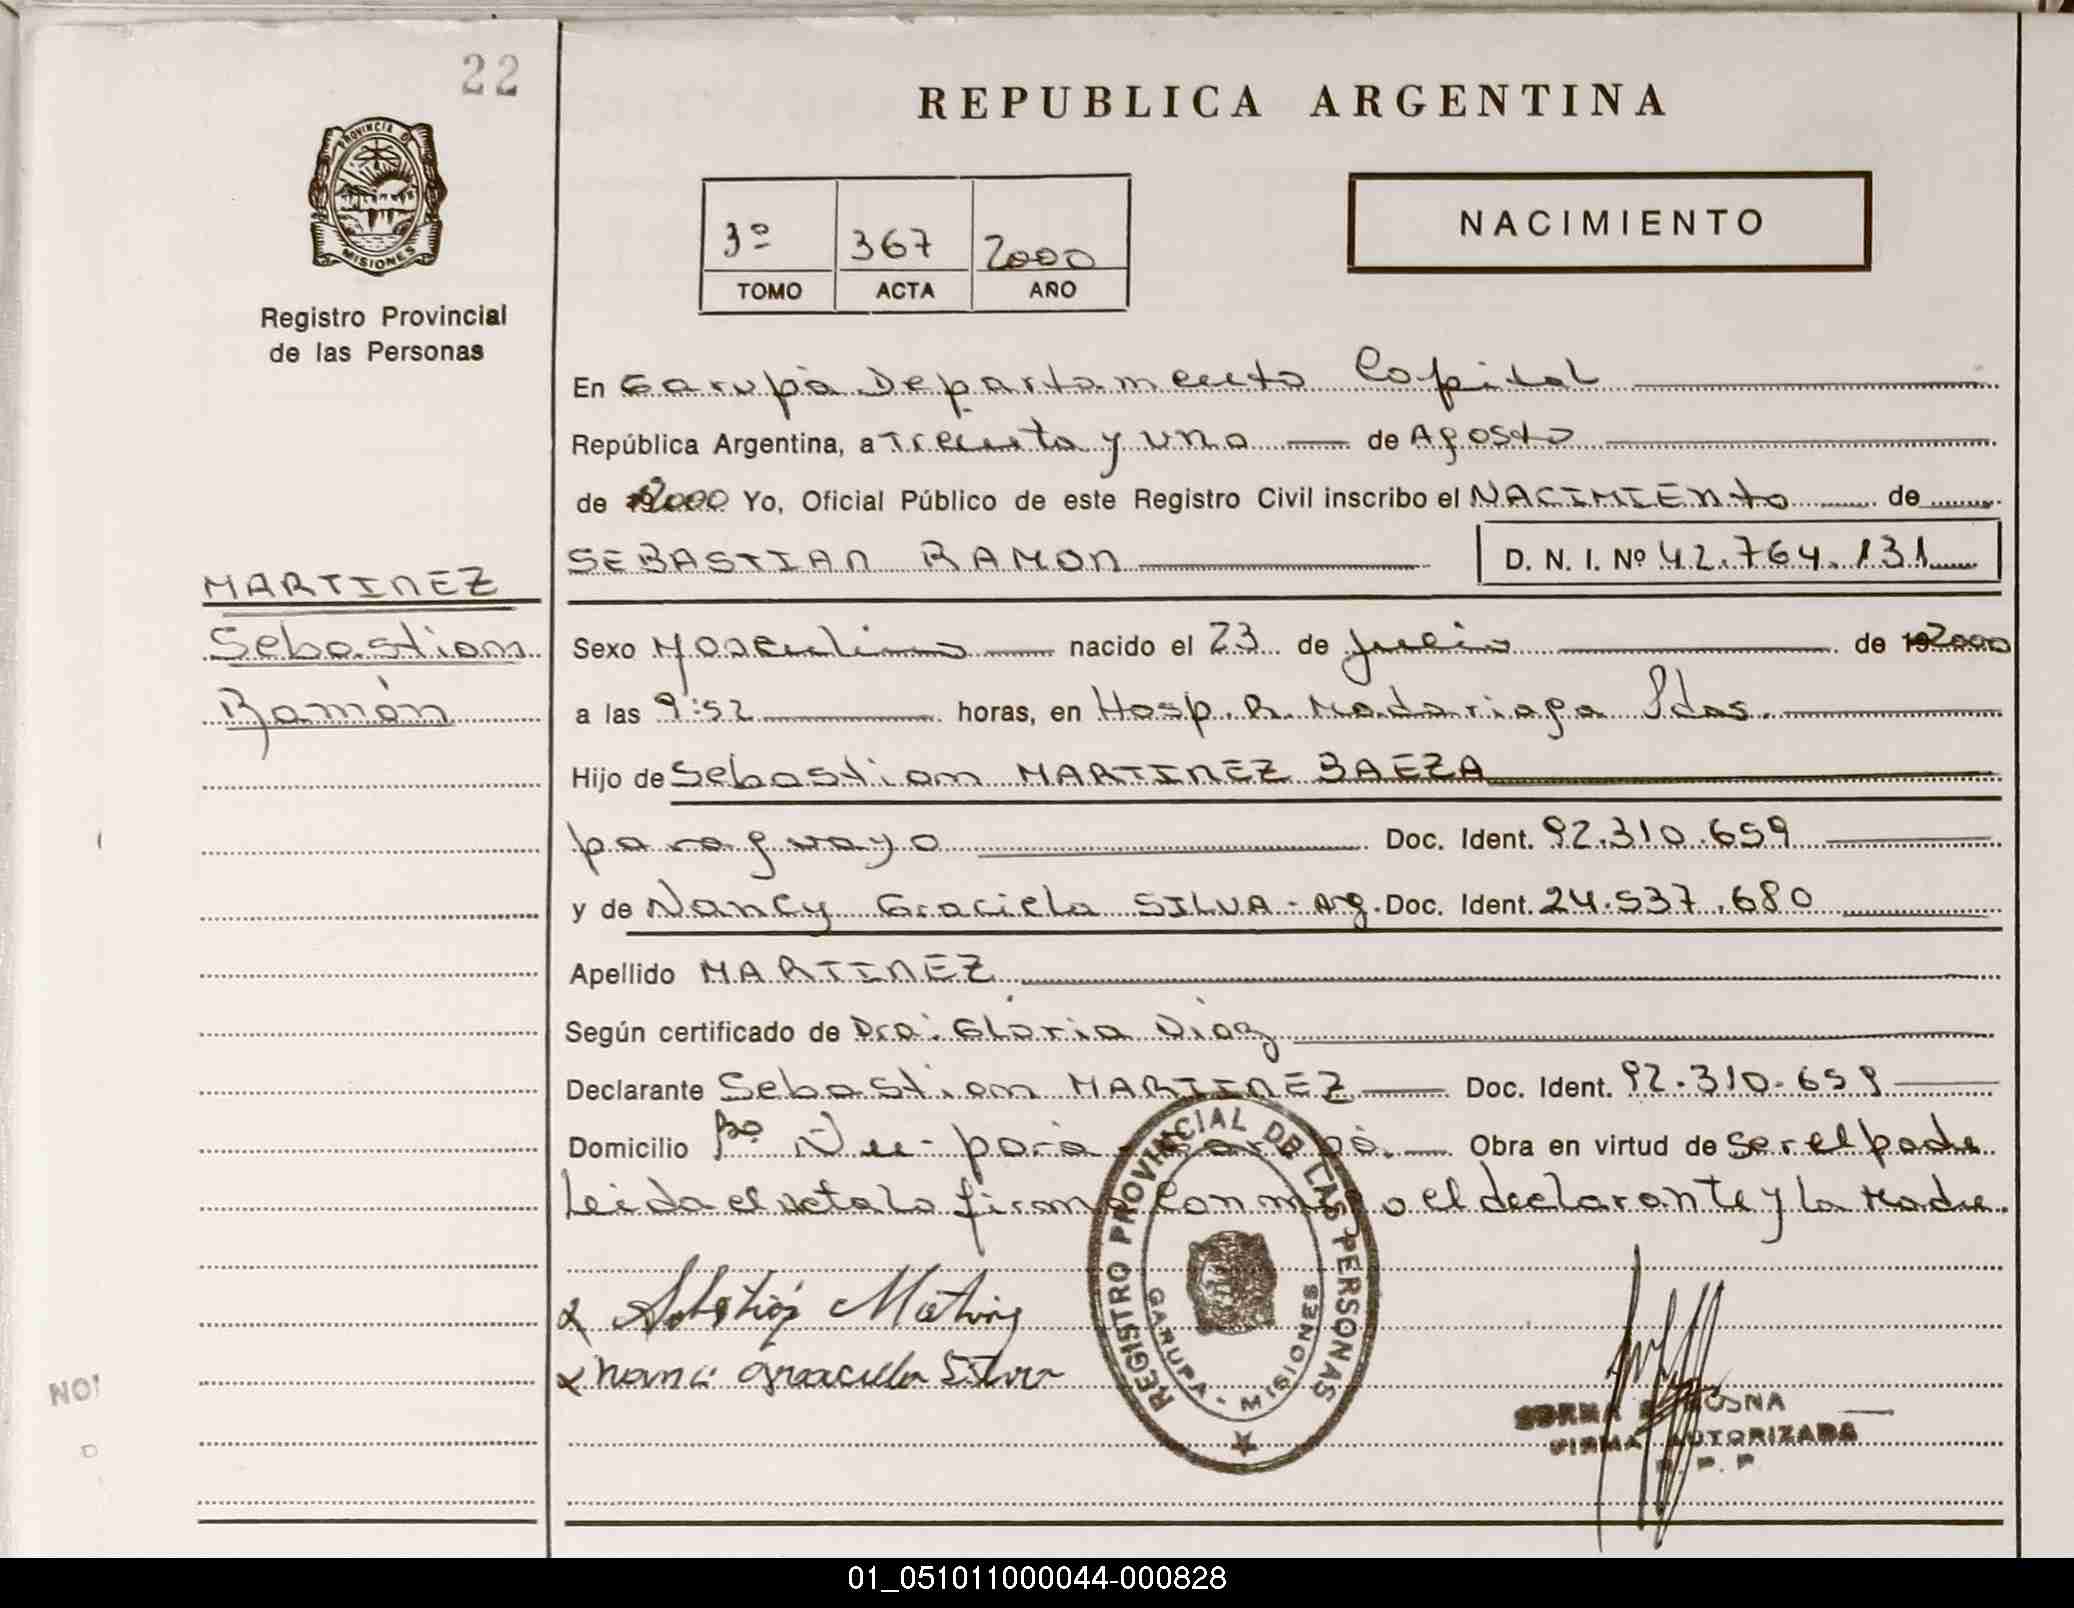 22
REPUBLICA ARGENTINA
PROVINCIA DE
MISIONES
Registro Provincial
de las Personas
3º 367 2000
TOMO ACTA AÑO
NACIMIENTO
En Garupà Departamento Capital
República Argentina, a Treinta y uno de Agosto
de 2000 Yo, Oficial Público de este Registro Civil inscribo el NACIMIENTO de
SEBASTIAN RAMON D. N. I. Nº 42.764.131
MARTINEZ
Sebastian
Ramón
Sexo Masculino nacido el 23 de Julio de 192000
a las 9:52 horas, en Hosp. R. Madariaga Pdas.
Hijo de Sebastian MARTINEZ BAEZA
paraguayo Doc. Ident. 92.310.659
y de Nancy Graciela SILVA - Arg. Doc. Ident. 24.537.680
Apellido MARTINEZ
Según certificado de Dra. Gloria Diaz
Declarante Sebastian MARTINEZ Doc. Ident. 92.310.659
Domicilio Bº Ñu-porà - Garupà. Obra en virtud de ser el padre
Leida el acta la firma conmigo el declarante y la Madre.
REGISTRO PROVINCIAL DE LAS PERSONAS
GARUPA - MISIONES
Graciela Silva
FIRMA AUTORIZADA
R. P. P.
NO
01_051011000044-000828